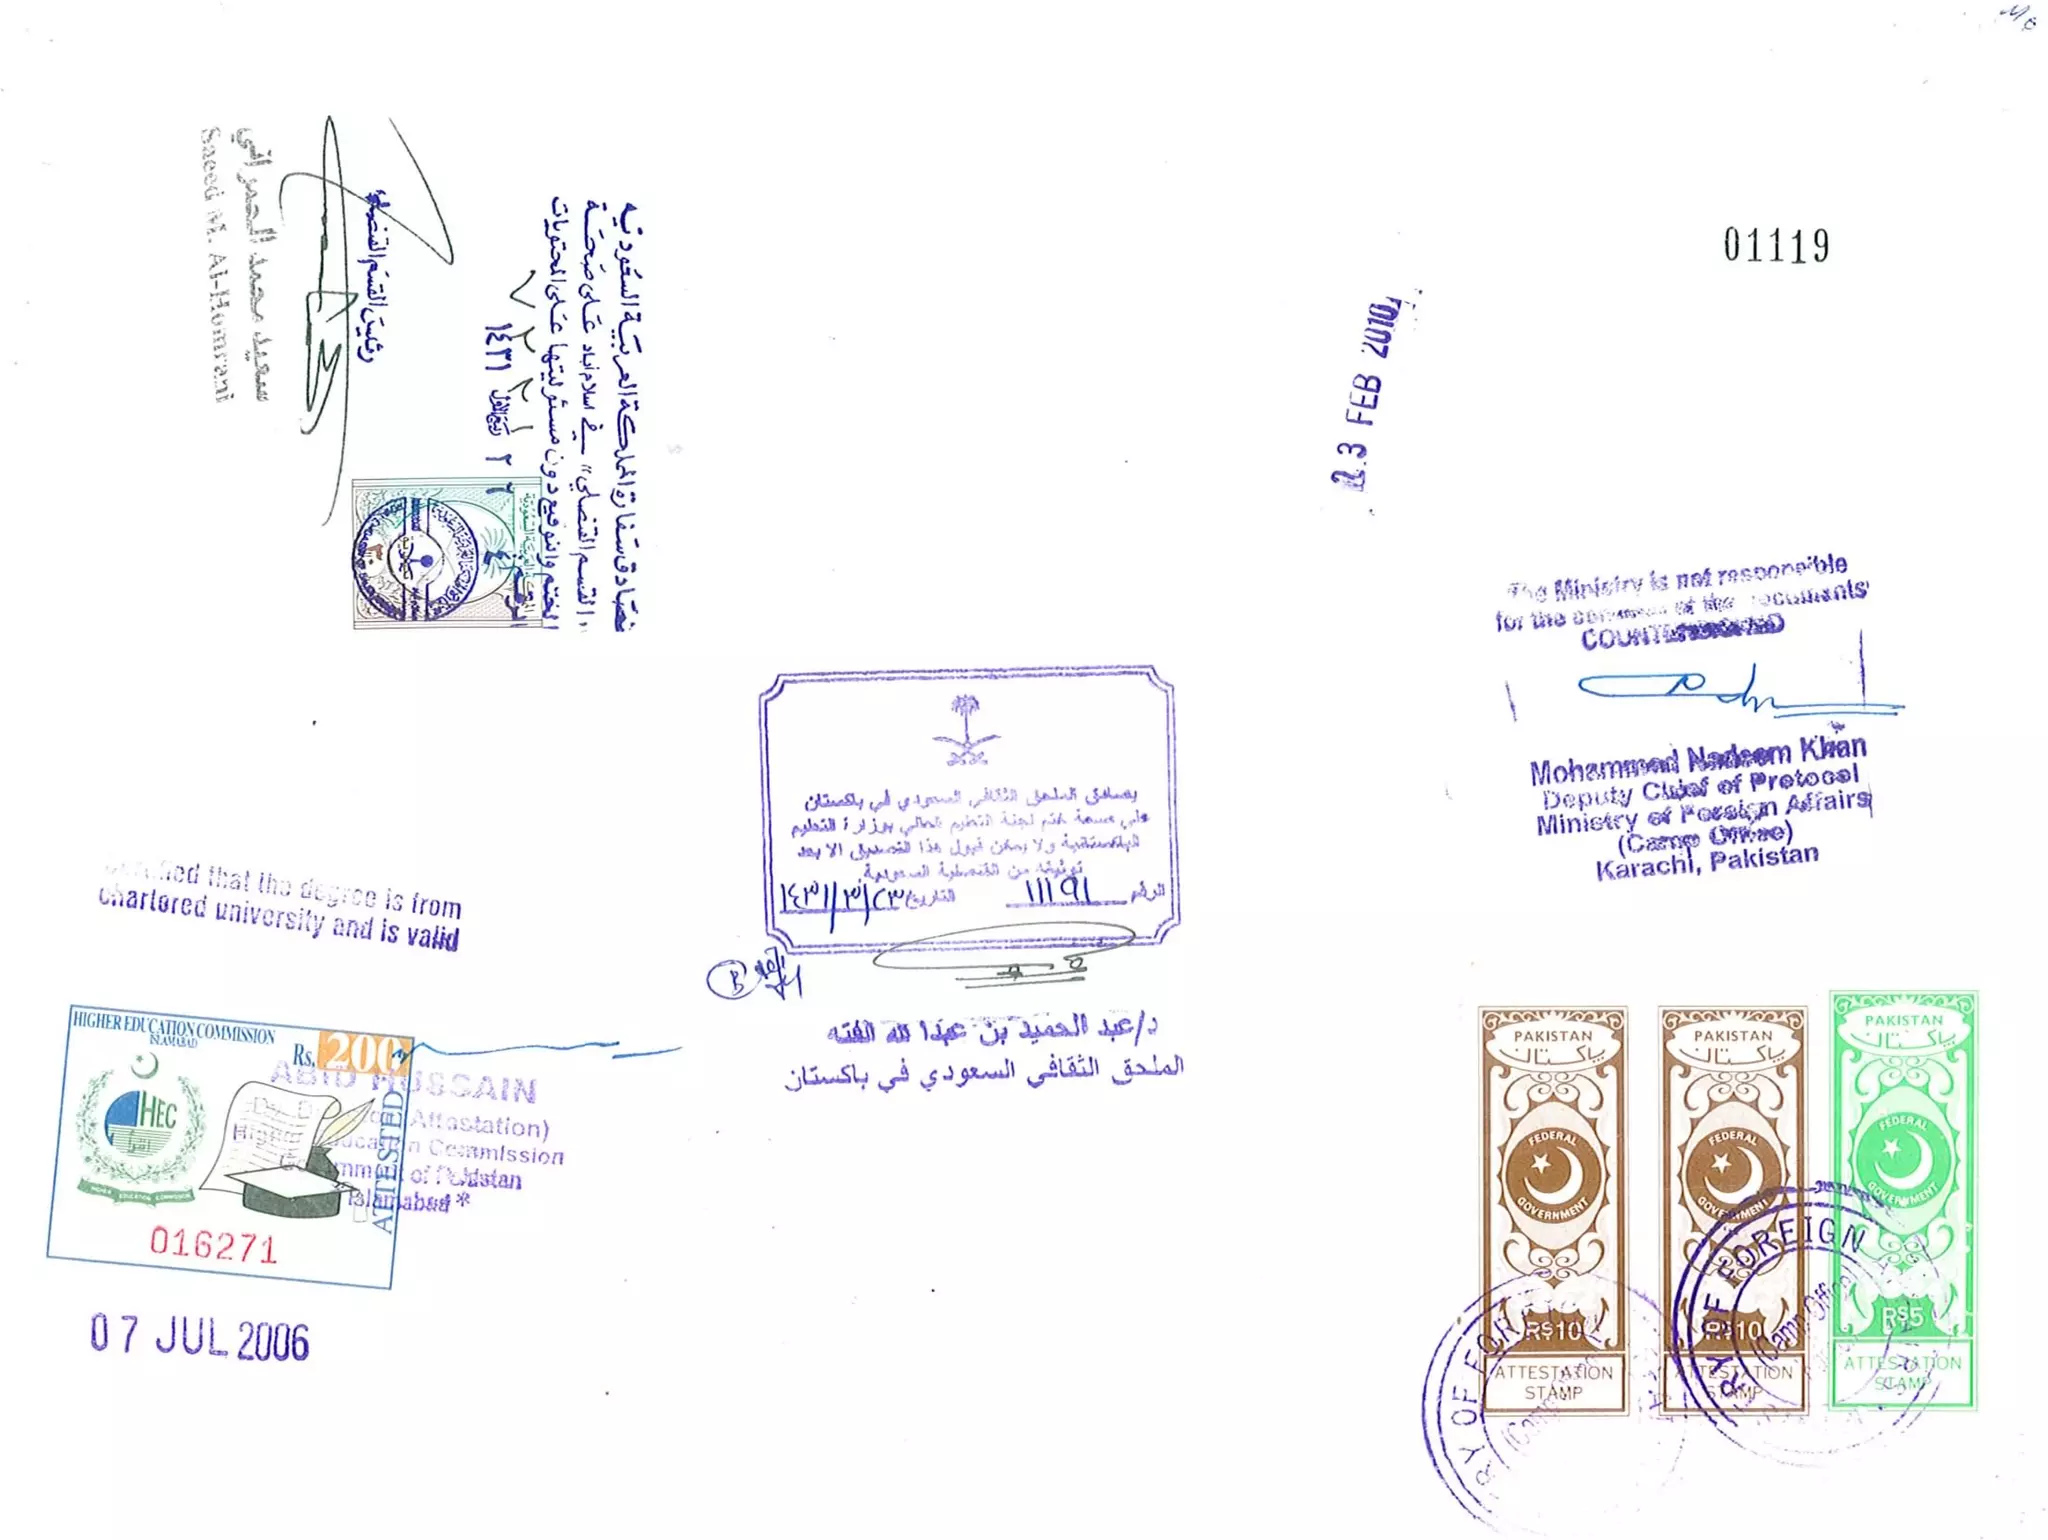 سعيد محمد الحمراني
Saeed M. Al-Homrani
رئيس القسم القنصلي
تصادق سفارة المملكة العربية السعودية
"القسم القنصلي" في اسلام آباد على صحة
الختم والتوقيع دون مسئوليتها على المحتويات
١٤٣١
01119
23 FEB 2010
The Ministry is not responsible
for the contents of the documents
COUNTERSIGNED
Mohammad Nadeem Khan
Deputy Chief of Protocol
Ministry of Foreign Affairs
(Camp Office)
Karachi, Pakistan
يصادق الملحق الثقافي السعودي في باكستان
على صحة ختم لجنة التعليم العالي بوزارة التعليم
الباكستانية ولا يمكن قبول هذا التصديق الا بعد
توثيقه من القنصلية السعودية
الرقم ١١١٩١ التاريخ ١٤٣١/٣/٢٣
B
د/عبد الحميد بن عبدا لله الفته
الملحق الثقافي السعودي في باكستان
that the degree is from
chartered university and is valid
HIGHER EDUCATION COMMISSION
ISLAMABAD
Rs. 200
HEC
HIGHER EDUCATION COMMISSION
ATTESTED
016271
ABID HUSSAIN
(Attestation)
Higher Education Commission
Government of Pakistan
*Islamabad*
07 JUL 2006
PAKISTAN
پاکستان
FEDERAL
GOVERNMENT
RS10
ATTESTATION
STAMP
PAKISTAN
پاکستان
FEDERAL
GOVERNMENT
RS10
ATTESTATION
STAMP
PAKISTAN
پاکستان
FEDERAL
GOVERNMENT
RS5
ATTESTATION
STAMP
RY OF FOR
RY OF FOREIGN
(Camp Office)